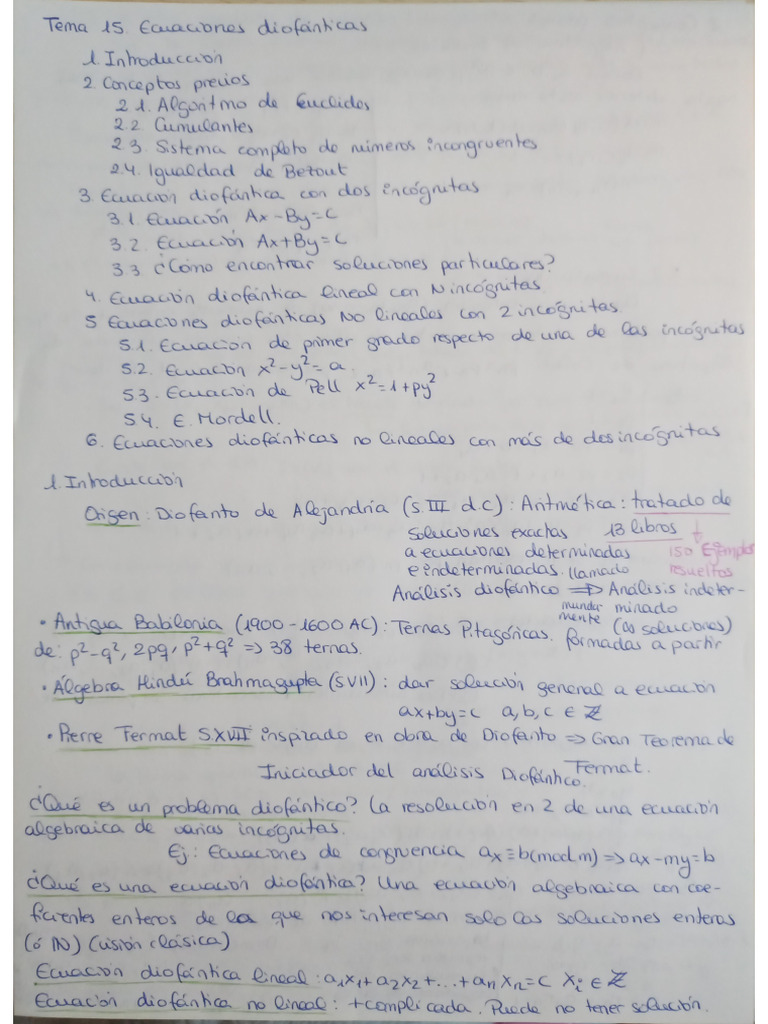 Tema 15. Ecuaciones diofánticas
1. Introducción
2. Conceptos previos
2.1. Algoritmo de Euclides
2.2 Cumulantes
2.3. Sistema completo de números incongruentes
2.4. Igualdad de Betout
3. Ecuación diofántica con dos incógnitas
3.1. Ecuación Ax-By=C
3.2. Ecuación Ax+By=C
3.3 ¿Cómo encontrar soluciones particulares?
4. Ecuación diofántica lineal con N incógnitas
5 Ecuaciones diofánticas No lineales con 2 incógnitas.
5.1. Ecuación de primer grado respecto de una de las incógnitas
5.2. Ecuación x²-y²=a.
5.3. Ecuación de Pell x²=1+py²
5.4. E. Mordell.
6. Ecuaciones diofánticas no lineales con más de dos incógnitas
1. Introducción
Origen: Diofanto de Alejandría (S.III d.C): Aritmética: tratado de
soluciones exactas 13 libros ↓
a ecuaciones determinadas 150 Ejemplos
e indeterminadas. llamado resueltos
Análisis diofántico ⇒ Análisis indeter-
minado
(∞ soluciones)
• Antigua Babilonia (1900-1600 AC): Ternas Pitagóricas. formadas a partir
de: p²-q², 2pq, p²+q² ⇒ 38 ternas.
• Álgebra Hindú Brahmagupta (SVII): dar solución general a ecuación
ax+by=c a,b,c ∈ ℤ
• Pierre Fermat SXVII inspirado en obra de Diofanto ⇒ Gran Teorema de
Fermat.
Iniciador del análisis Diofántico.
¿Qué es un problema diofántico? La resolución en ℤ de una ecuación
algebraica de varias incógnitas.
Ej: Ecuaciones de congruencia ax≡b(mod m) ⇒ ax-my=b
¿Qué es una ecuación diofántica? Una ecuación algebraica con coe-
ficientes enteros de la que nos interesan solo las soluciones enteras
(ó ℕ) (visión clásica)
Ecuación diofántica lineal: a₁x₁+a₂x₂+...+aₙxₙ=c xᵢ ∈ ℤ
Ecuación diofántica no lineal: + complicada. Puede no tener solución.